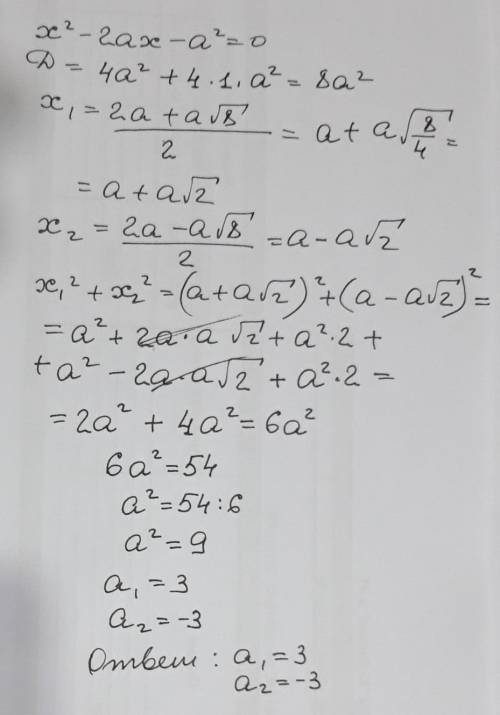 x² - 2ax - a² = 0
D = 4a² + 4 · 1 · a² = 8a²
x₁ = (2a + a√8)/2 = a + a√(8/4) =
= a + a√2
x₂ = (2a - a√8)/2 = a - a√2
x₁² + x₂² = (a + a√2)² + (a - a√2)² =
= a² + 2a · a√2 + a² · 2 +
+ a² - 2a · a√2 + a² · 2 =
= 2a² + 4a² = 6a²
6a² = 54
a² = 54 : 6
a² = 9
a₁ = 3
a₂ = -3
Ответ : a₁ = 3
a₂ = -3